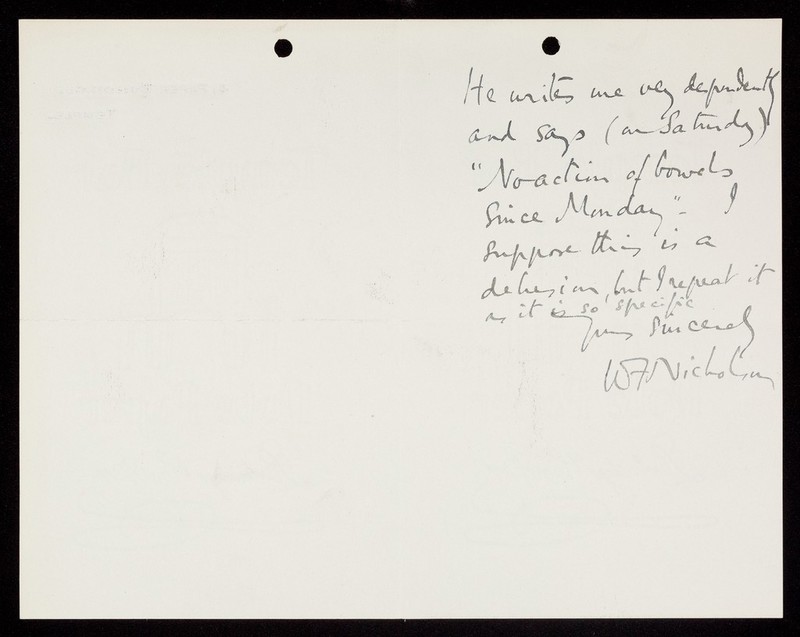 He writes me very despondently
and says (on Saturday)
"No action of bowels
since Monday". I
suppose this is a
delusion, but I repeat it
as it is so specific
Yours sincerely
WF Nicholson